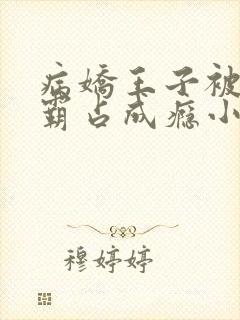 病嬌王子被
霸占成瘾小
穆婷婷